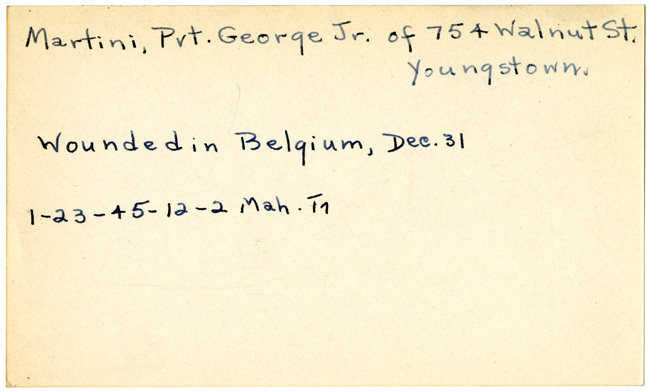 Martini, Pvt. George Jr. of 754 Walnut St.
Youngstown.
Wounded in Belgium, Dec. 31
1-23-45-12-2 Mah. Tn